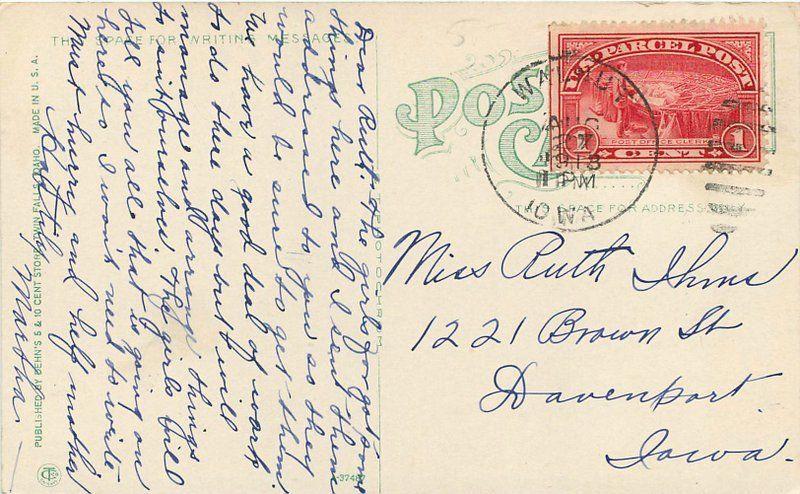 THE SPACE FOR WRITING MESSAGES
Dear Ruth: The girls forgot some
things here and I sent them
addressed to you as they
would be sure to get them.
We have a good deal of work
to do these days but will
manage and arrange things
to suit ourselves. The girls will
tell you all that is going on
here so I won't need to write
Must hurry and help mother
Hastily
Martha.
PUBLISHED BY BEHN'S 5 & 10 CENT STORE, TWIN FALLS, IDAHO. MADE IN U.S.A.
POST
CA
THE SPACE FOR ADDRESS
U.S. PARCEL POST
1
1
POST OFFICE CLERK
CENT
AUG
27
1913
1 PM
IOWA
Miss Ruth Ihms
1221 Brown St
Davenport.
Iowa.